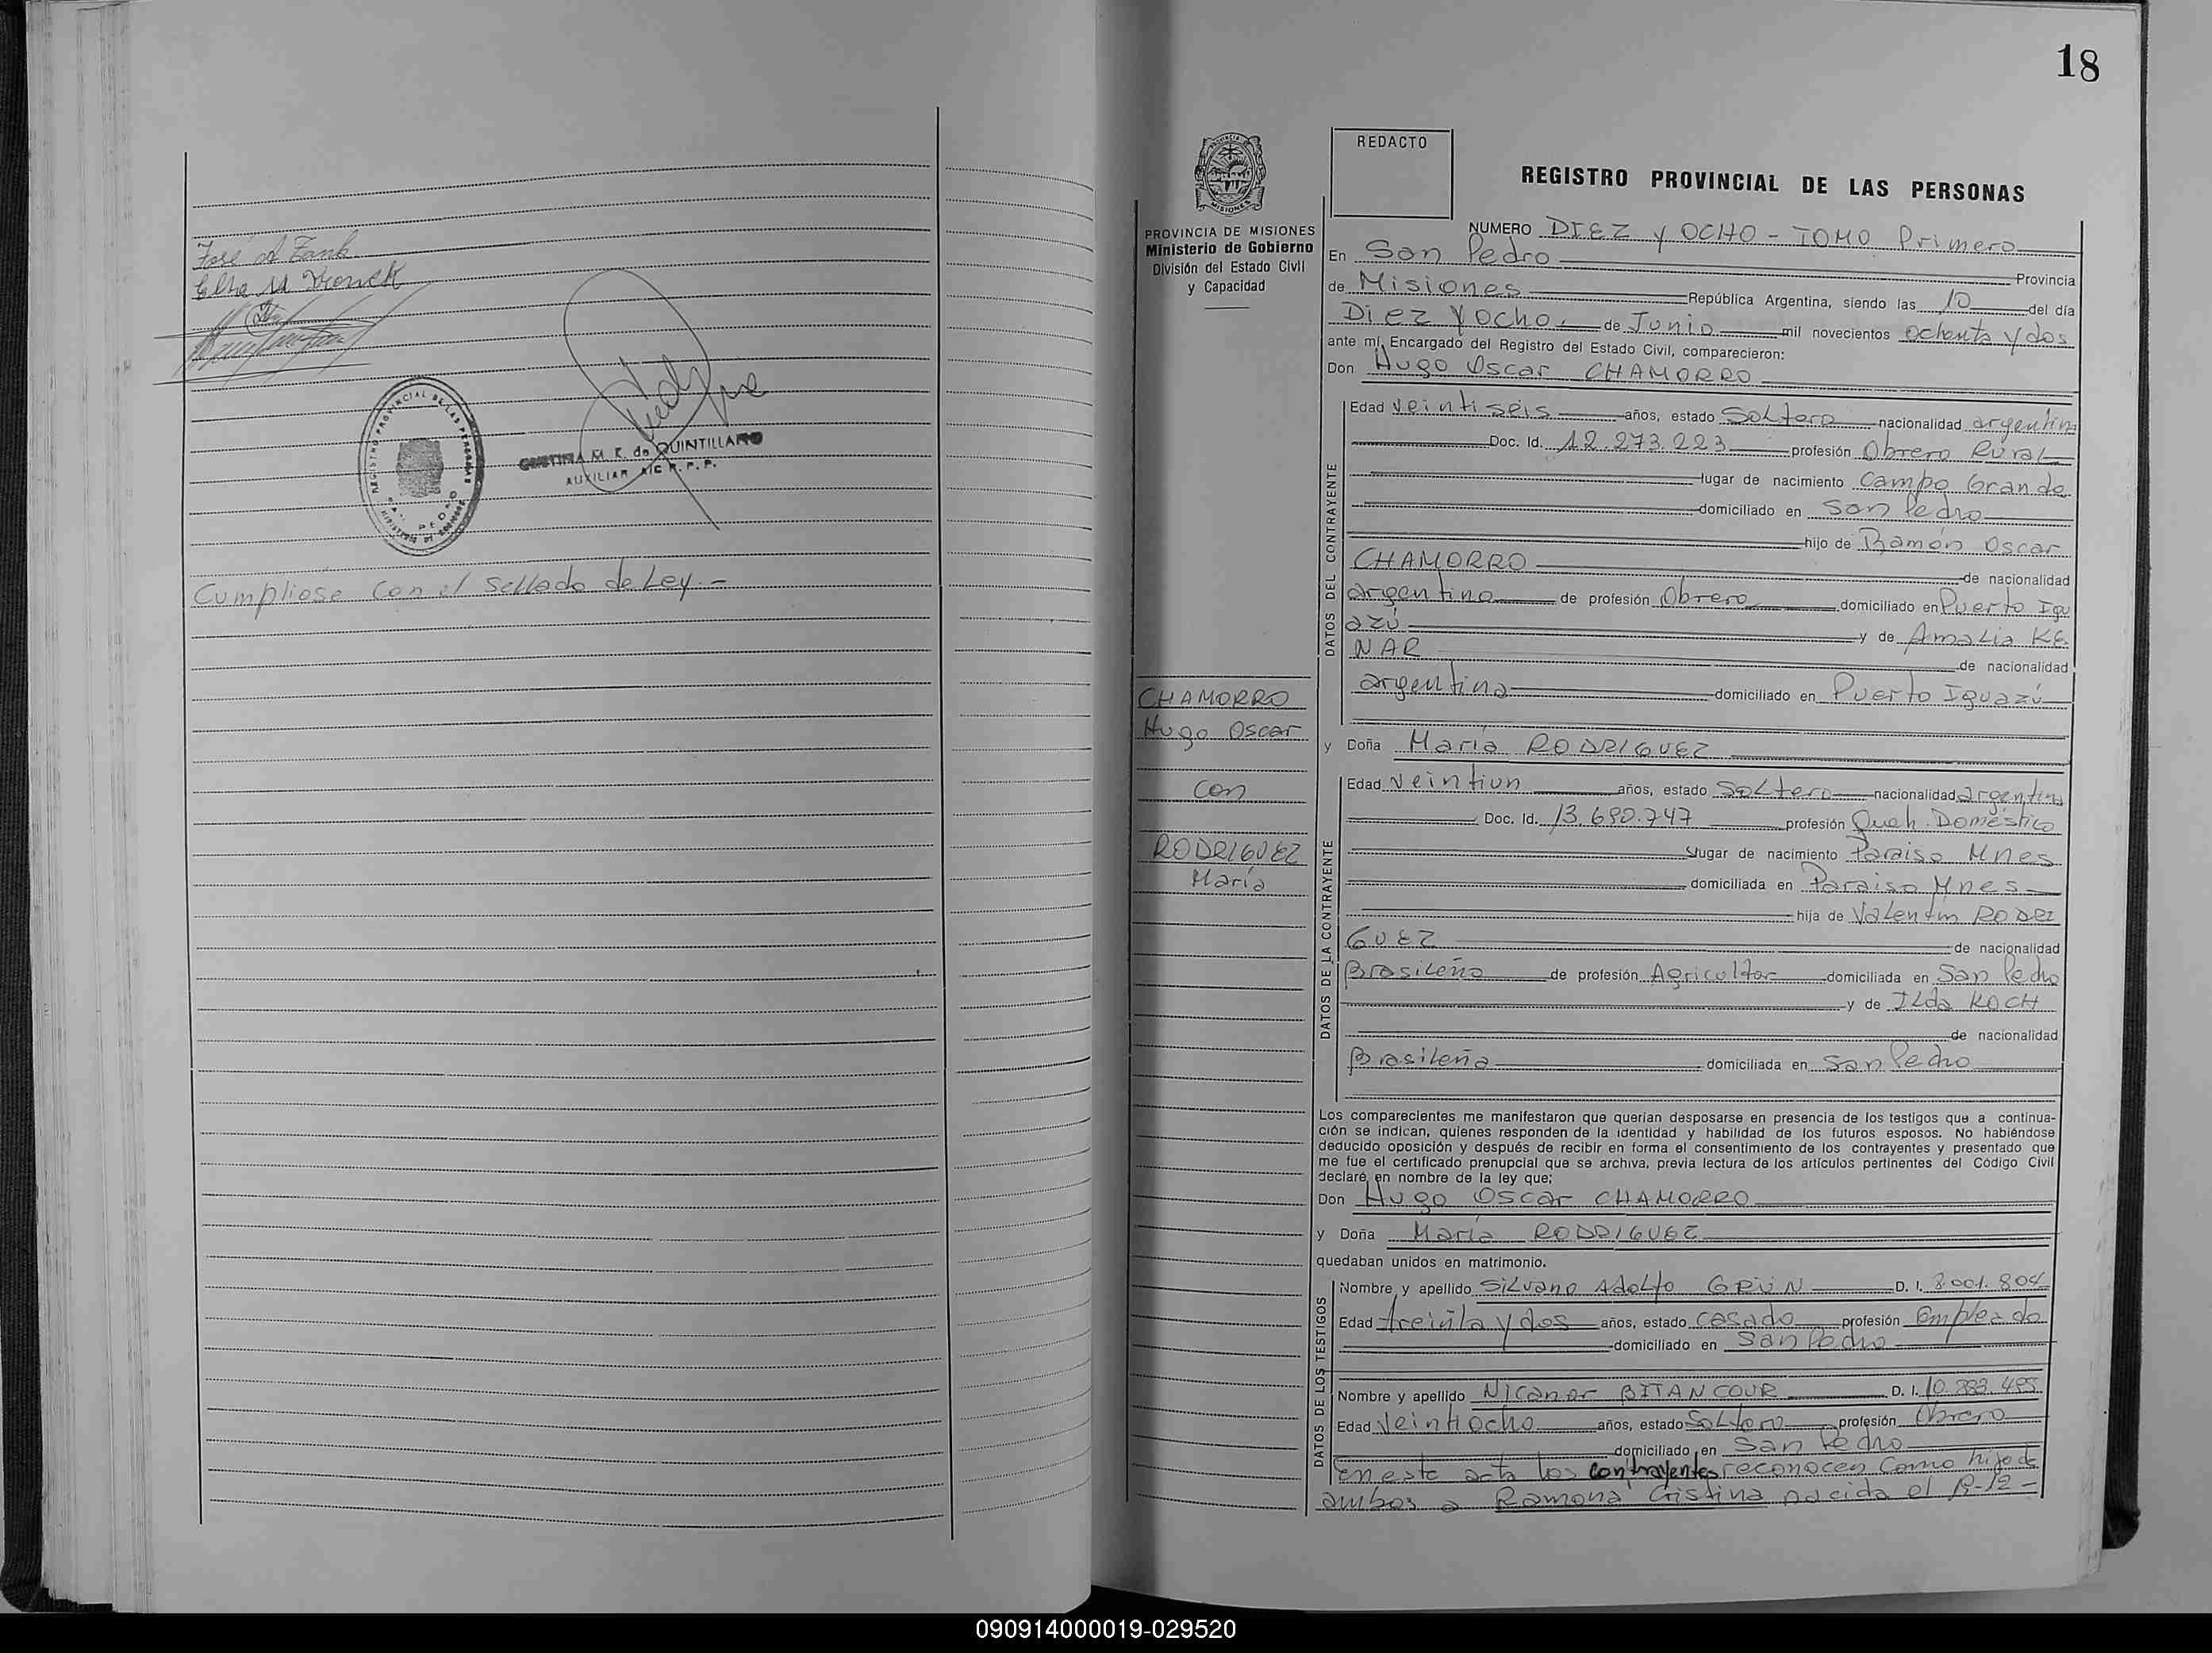 José A Zank
REGISTRO PROVINCIAL DE LAS PERSONAS
SAN PEDRO
QUINTILLANO
AUXILIAR
Cumpliose con el Sellado de Ley.-
18
PROVINCIA DE MISIONES
Ministerio de Gobierno
División del Estado Civil
y Capacidad
CHAMORRO
Hugo Oscar
con
RODRIGUEZ
María
REDACTO
REGISTRO PROVINCIAL DE LAS PERSONAS
NUMERO DIEZ y OCHO - TOMO Primero
En San Pedro Provincia
de Misiones República Argentina, siendo las 10 del día
Diez y ocho de Junio mil novecientos ochenta y dos
ante mí, Encargado del Registro del Estado Civil, comparecieron:
Don Hugo Oscar CHAMORRO
DATOS DEL CONTRAYENTE
Edad veintiseis años, estado Soltero nacionalidad argentina
Doc. Id. 12.273.223 profesión Obrero Rural
lugar de nacimiento Campo Grande
domiciliado en San Pedro
hijo de Ramón Oscar
CHAMORRO de nacionalidad
argentina de profesión Obrero domiciliado en Puerto Igu
azú y de Amalia KE
NAR de nacionalidad
argentina domiciliado en Puerto Iguazú
y Doña María RODRIGUEZ
DATOS DE LA CONTRAYENTE
Edad Veintiun años, estado Soltera nacionalidad argentina
Doc. Id. 13.690.747 profesión Queh. Doméstico
lugar de nacimiento Paraiso Mnes
domiciliada en Paraiso Mnes
hija de Valentin RODRI
GUEZ de nacionalidad
Brasileña de profesión Agricultor domiciliada en San Pedro
y de Ilda KOCH
de nacionalidad
Brasileña domiciliada en San Pedro
Los comparecientes me manifestaron que querían desposarse en presencia de los testigos que a continua-
ción se indican, quienes responden de la identidad y habilidad de los futuros esposos. No habiéndose
deducido oposición y después de recibir en forma el consentimiento de los contrayentes y presentado que
me fue el certificado prenupcial que se archiva, previa lectura de los artículos pertinentes del Código Civil
declaré en nombre de la ley que;
Don Hugo Oscar CHAMORRO
y Doña María RODRIGUEZ
quedaban unidos en matrimonio.
DATOS DE LOS TESTIGOS
Nombre y apellido Silvano Adolfo GRÜN D. I. 8.001.804
Edad treinta y dos años, estado casado profesión Empleado
domiciliado en San Pedro
Nombre y apellido Nicanor BITANCOUR D. I.
Edad Veintiocho años, estado Soltero profesión Obrero
domiciliado en San Pedro
En este acto los contrayentes reconocen como hijo de
ambos a Ramona Cristina nacida el
090914000019-029520